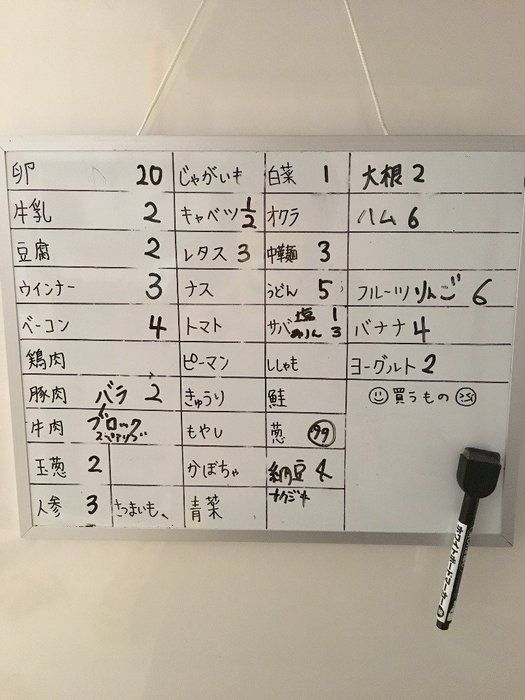 卵 20
牛乳 2
豆腐 2
ウインナー 3
ベーコン 4
鶏肉
豚肉 バラ 2
牛肉 ブロック
スペアリブ
玉葱 2
人参 3
さつまいも
じゃがいも
キャベツ 1/2
レタス 3
ナス
トマト
ピーマン
きゅうり
もやし
かぼちゃ
青菜
白菜 1
オクラ
中華麺 3
うどん 5
サバ 塩 1
みりん 3
ししゃも
鮭
葱
納豆 4
大根 2
ハム 6
フルーツ りんご 6
バナナ 4
ヨーグルト 2
買うもの
ホワイトボードマーカー